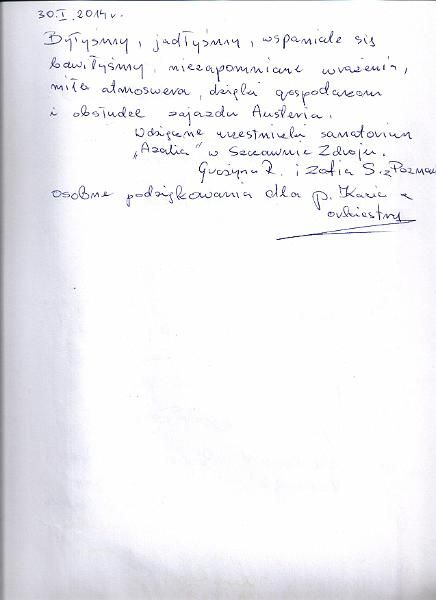 30.I.2014r.
Byłyśmy, jadłyśmy, wspaniale się
bawiłyśmy, niezapomniane wrażenia,
miła atmoswera, dzięki gospodarzom
i obsłudze zajazdu Austeria.
Wdzięczne uczestniczki sanatorium
„Azalia” w Szczawnie Zdroju.
Grażyna R. i Zofia S. z Poznania
osobne podziękowania dla p. Kazia z
orkiestry